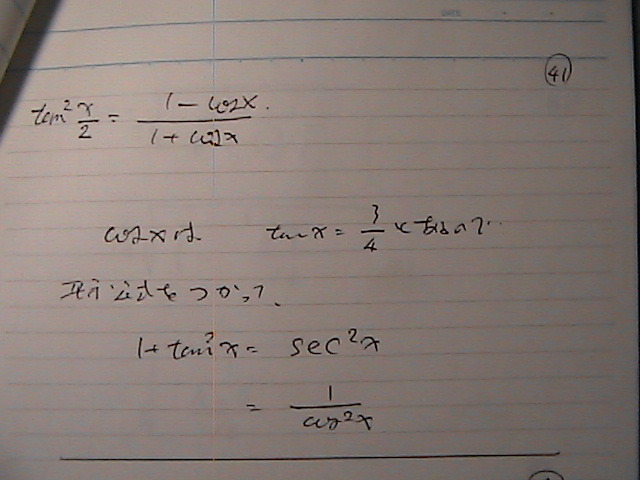 DATE
41
tan² x/2 = (1 - cos x)/(1 + cos x).
cos x は tan x = 3/4 となるので..
1 + tan² x = sec² x
= 1/cos² x